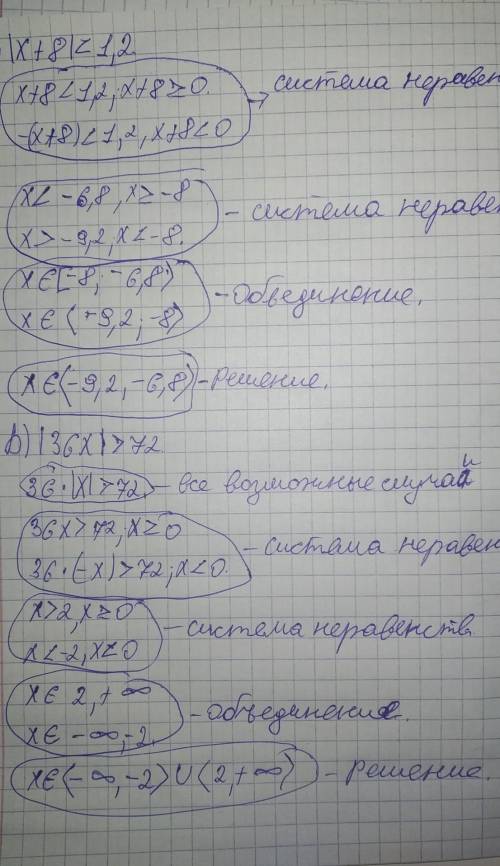 |x+8|<1,2.
x+8<1,2, x+8≥0. → система неравен
-(x+8)<1,2, x+8<0
x<-6,8, x≥-8 - система нераве
x>-9,2, x<-8.
x∈[-8; -6,8) - Объединение.
x∈(-9,2; -8)
x∈(-9,2, -6,8) - Решение.
b) |36x|>72
36·|x|>72 - все возможные случаи
36x>72, x≥0 - система неравен
36·(-x)>72, x<0.
x>2, x≥0 - система неравенств
x<-2, x<0
x∈ 2, +∞ - объединение.
x∈ -∞, -2.
x∈(-∞, -2)∪(2, +∞) - Решение.